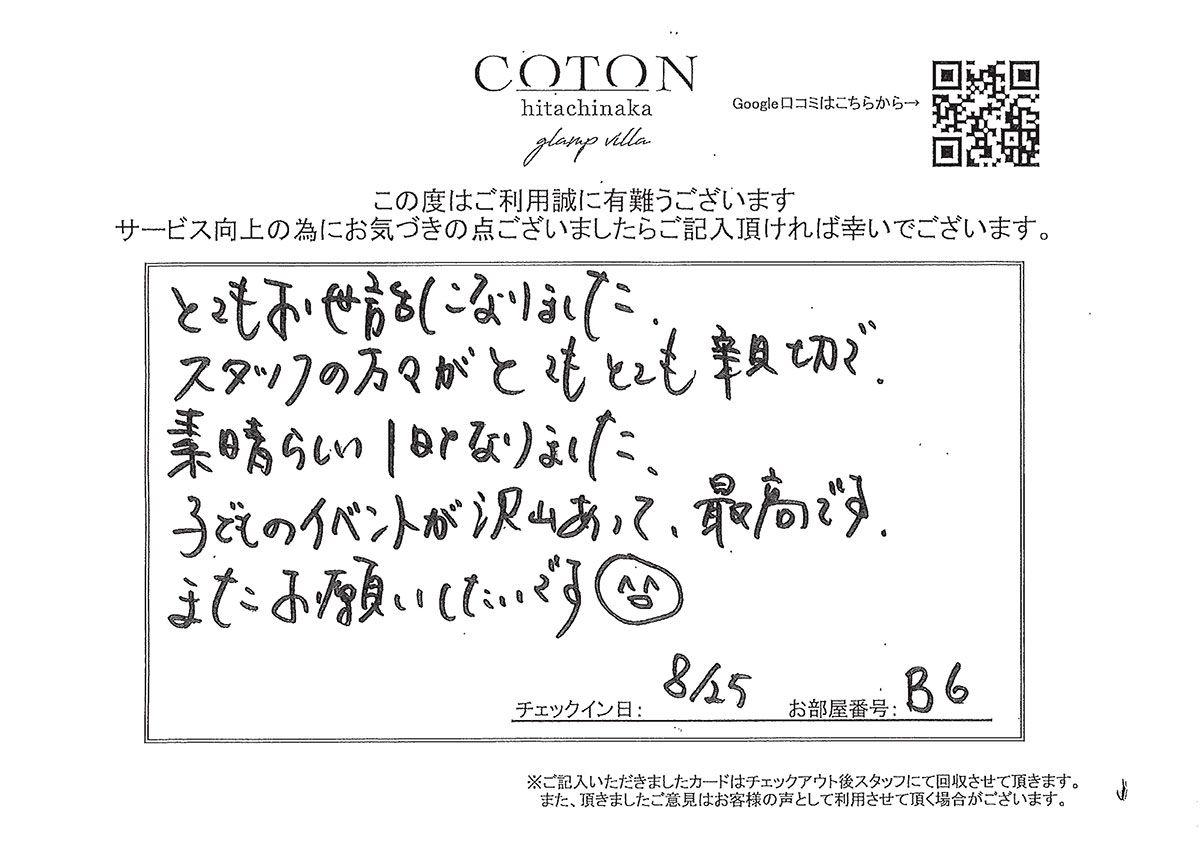 COTON
hitachinaka
glamp villa
Google口コミはこちらから→
この度はご利用誠に有難うございます
サービス向上の為にお気づきの点ございましたらご記入頂ければ幸いでございます。
とてもお世話になりました.
スタッフの方々がとてもとても親切で.
素晴らしい1日となりました、
子どものイベントが沢山あって、最高です.
またお願いしたいです
チェックイン日: 8/25 お部屋番号: B6
※ご記入いただきましたカードはチェックアウト後スタッフにて回収させて頂きます。
また、頂きましたご意見はお客様の声として利用させて頂く場合がございます。